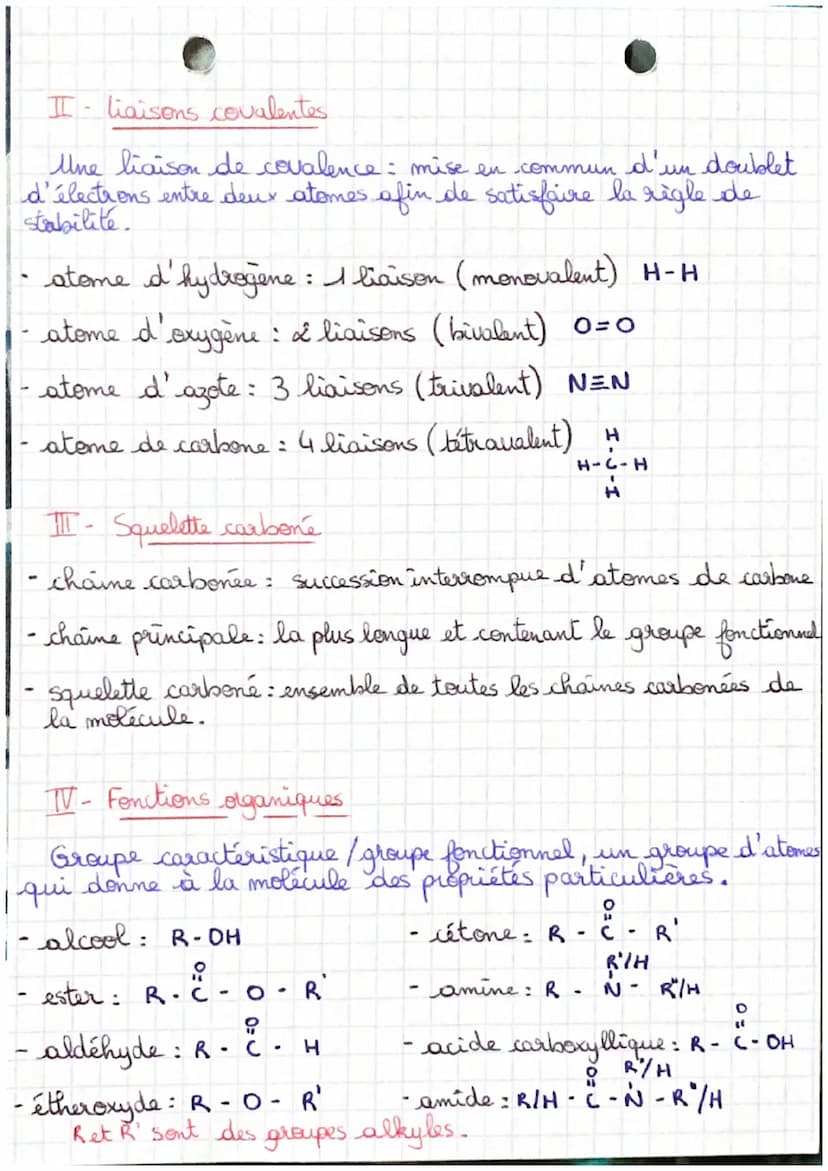 II - Liaisons covalentes
Une liaison de covalence : mise en commun d'un doublet
d'électrons entre deux atomes afin de satisfaire la règle de
stabilité.
- atome d'hydrogène : 1 liaison (monovalent) H-H
- atome d'oxygène : 2 liaisons (bivalent) O=O
- atome d'azote : 3 liaisons (trivalent) N≡N
- atome de carbone : 4 liaisons (tétravalent) H
H-C-H
H
III - Squelette carboné
- chaîne carbonée : succession interrompue d'atomes de carbone
- chaîne principale : la plus longue et contenant le groupe fonctionnel
- squelette carboné : ensemble de toutes les chaînes carbonées de
la molécule.
IV - Fonctions organiques
Groupe caractéristique / groupe fonctionnel, un groupe d'atomes
qui donne à la molécule des propriétés particulières.
- alcool : R-OH
O
- ester : R - C - O - R'
O
- aldéhyde : R - C - H
- étheroxyde : R - O - R'
O
- cétone : R - C - R'
R'/H
- amine : R - N - R"/H
O
- acide carboxyllique : R - C - OH
O R'/H
- amide : R/H - C - N - R"/H
R et R' sont des groupes alkyles.